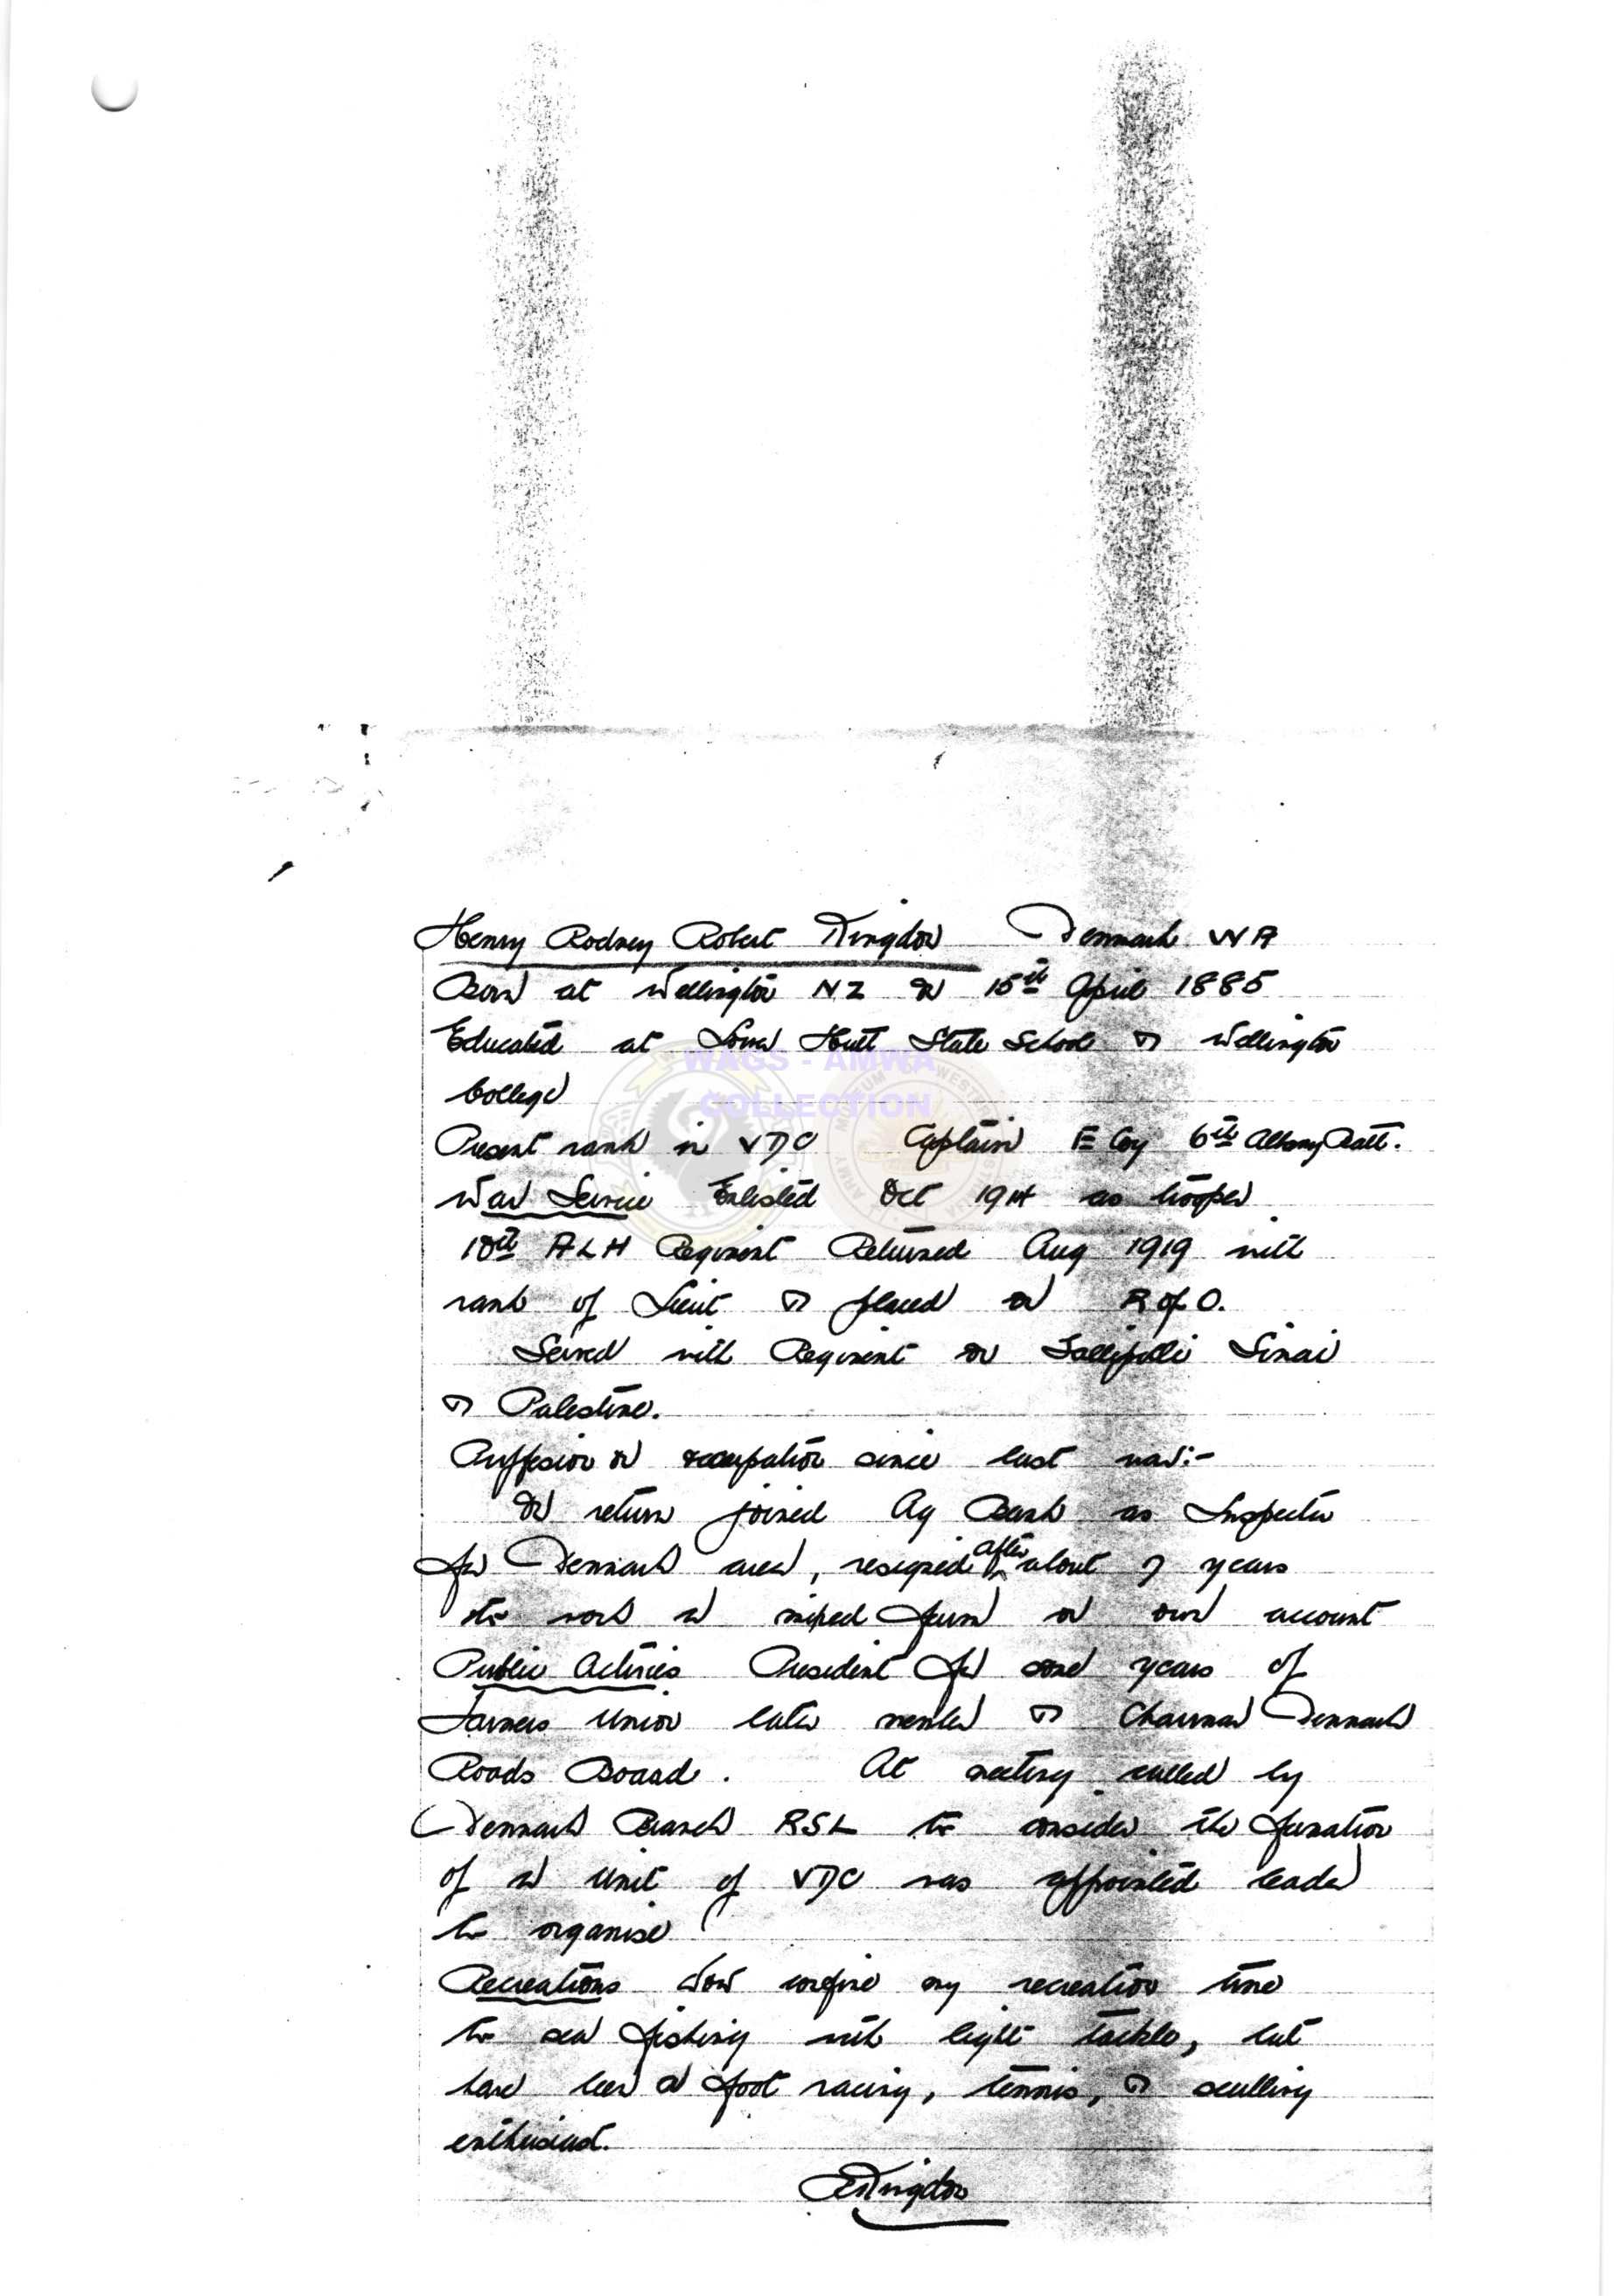 Henry Rodney Robert Kingdon Denmark WA
Born at Wellington NZ on 15th April 1885
Educated at Lower Hutt State School & Wellington
College
Present rank in VDC Captain E Coy 6th Albany Batt.
War Service Enlisted Oct 1914 as trooper
10th ALH Regiment Returned Aug 1919 with
rank of Lieut & placed on R of O.
Served with Regiment on Gallipoli Sinai
& Palestine.
Proffesion or occupation since last war:-
On return joined Ag Bank as Inspector
for Denmark area, resigned after about 7 years
to work a mixed farm on own account
Public Activies President for some years of
Farmers Union later member & Chairman Denmark
Roads Board. At meeting called by
Denmark Branch RSL to consider the formation
of a Unit of VDC was appointed leader
to organise
Recreations Now confine my recreation time
to sea fishing with light tackle, but
have been a foot racing, tennis, & sculling
enthusiast.
Kingdon
WAGS - AMWA
COLLECTION